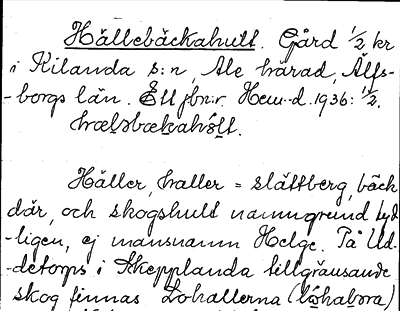 Hällebäckahult. Gård 1/2 kr
i Kilanda s:n, Ale härad, Älfs-
-borgs län. Ett jbn:r. Hem-d. 1936: 1/2.
Häller, haller = slättberg, bäck
där, och skogshult namngrund tyd-
-ligen, ej mansnamn Helge. På Ud-
-detorps i Skepplanda tillgränsande
skog finnas Lohallerna